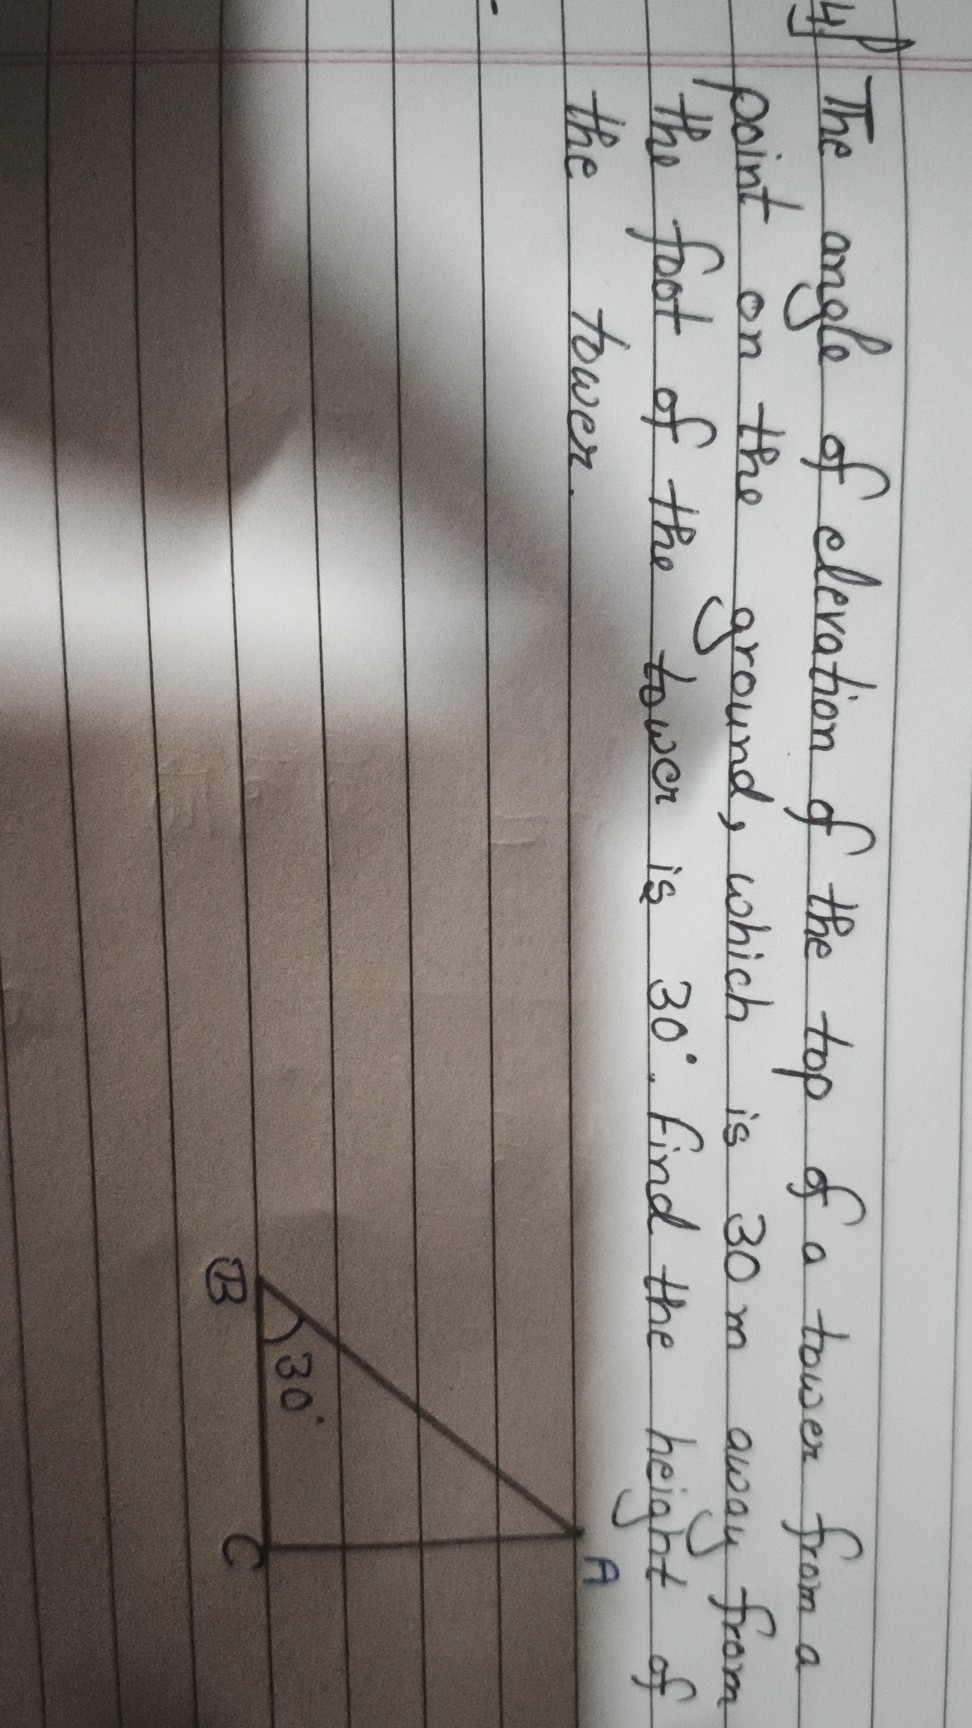 4) The angle of elevation of the top of a tower from a
point on the ground, which is 30 m away from
the foot of the tower is 30°. Find the height of
the tower.
A
30°
B
C